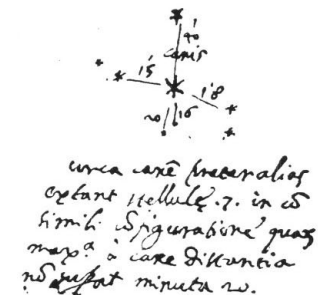 40
canis
15
18
20 16
circa canē preter alias
extant stellulę .7. in cō
simili cōfiguratione quaꝝ
max.ᵃ à cane distantia
nō supat minuta 20.